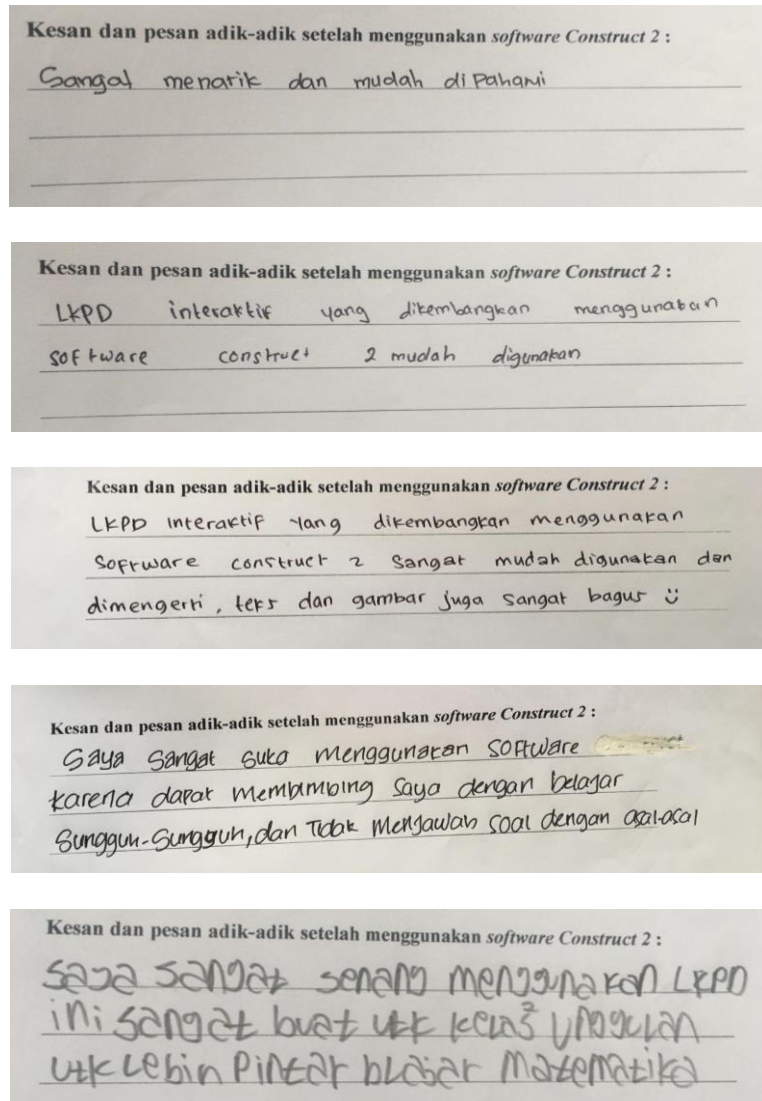 Kesan dan pesan adik-adik setelah menggunakan software Construct 2 :
Sangat menarik dan mudah di pahami
Kesan dan pesan adik-adik setelah menggunakan software Construct 2 :
LKPD interaktif yang dikembangkan menggunakan
software construct 2 mudah digunakan
Kesan dan pesan adik-adik setelah menggunakan software Construct 2 :
LKPD Interaktif yang dikembangkan menggunakan
Software construct 2 sangat mudah digunakan dan
dimengerti, teks dan gambar juga sangat bagus
Kesan dan pesan adik-adik setelah menggunakan software Construct 2 :
Saya Sangat suka menggunakan Software
karena dapat membimbing saya dengan belajar
Sungguh-Sungguh, dan Tidak Menjawab soal dengan asal-asal
Kesan dan pesan adik-adik setelah menggunakan software Construct 2 :
saya sangat senang menggunakan LKPD
ini sangat buat utk kelas² unggulan
utk lebih pintar blajar matematika